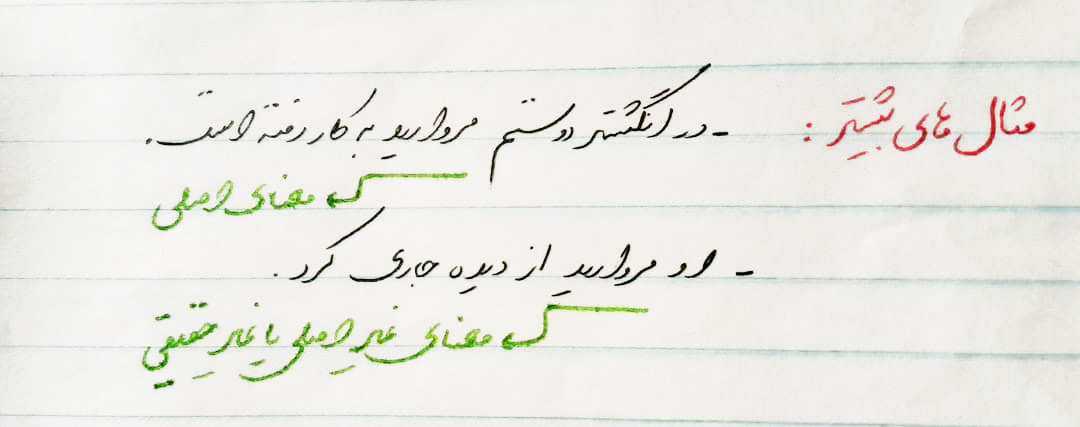 مثال های بیشتر :
- در انگشتر دوستم مروارید به کار رفته است.
معنای اصلی
- او مروارید از دیده جاری کرد.
معنای غیر اصلی یا غیر حقیقی